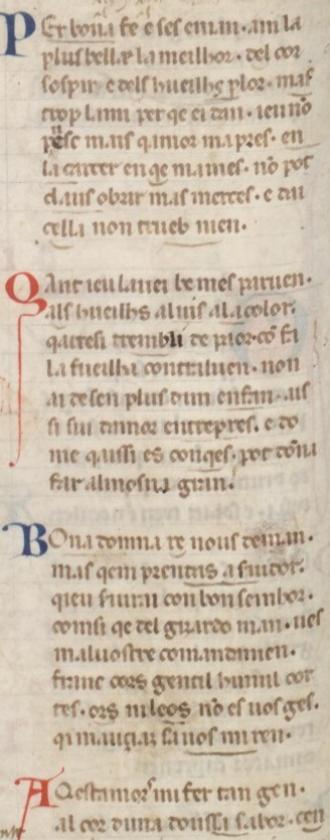 PEr bona fe e ses enian · am la
plus bella e la meilhor · del cor
sospir e dels hueilhs plor · mas
trop lam per qe ei dan · ieu no
pesc mais q amor ma pres · en
la carcer en qe ma mes · no pot
claus obrir mas merces · e dai
cella non trueb nien ·
QAnt ieu la uei be mes paruen ·
als hueilhs al uis a la color ·
qaresi trembli de paor · co fa
la fueilha contra luen · non
ai de sen plus dun enfan · aissi
si sui damor entrepres · e do
me qaissi es conqes · pot dona
far almosna gran ·
BOna domna re nous deman ·
mas qem prendas a seruidor ·
qieu seruirai con bon seinhor ·
consi qe del guardo man · ues
mal uostre comandamen ·
franc cors gentil humil cor
tes · ors ni leos no es uos ges ·
qi mauçiaz sa uos mi ren ·
AQestamors mi fer tan gen ·
al cor duna doussa sabor · cen